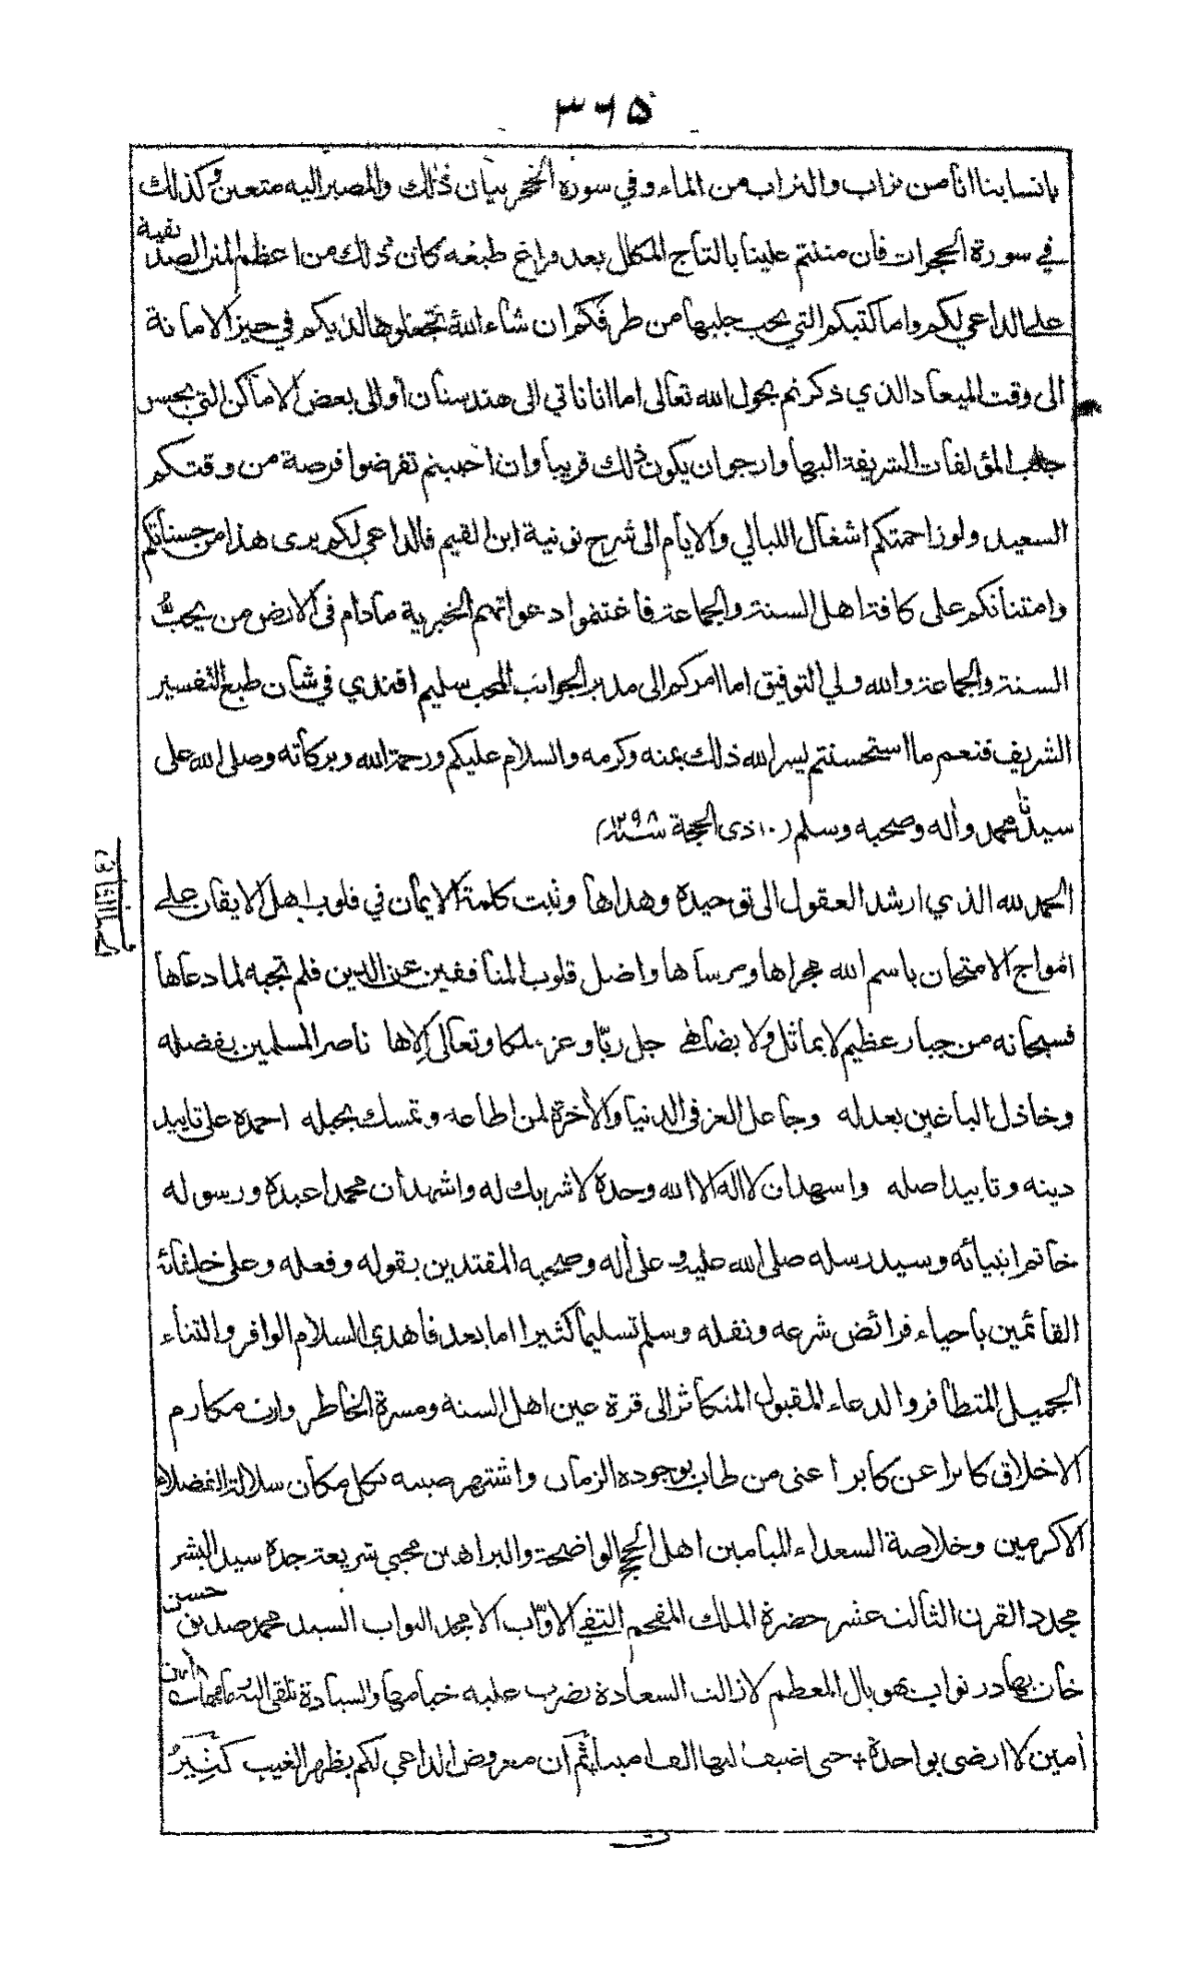 ۳۶۵
بانسابنا انا من تراب والتراب من الماء وفي سورة الحجر بيان ذلك والمصير اليه متعين وكذلك
في سورة الحجرات فان مننتم علينا بالتاج المكلل بعد فراغ طبعه كان ذلك من اعظم المنن الصدقية
على الداعي لكم واما كتبكم التي يحب جلبها من طرفكم ان شاء الله تجعلوها لديكم في حيز الامانة
الى وقت الميعاد الذي ذكرتم بحول الله تعالى اما انا ناتي الى هندستان او الى بعض الاماكن التي يحسن
جلب المؤلفات الشريفة اليها وارجو ان يكون ذلك قريبا وان احببتم تفرضوا فرصة من وقتكم
السعيد ولو زاحمتكم اشغال الليالي والايام الى شرح نونية ابن القيم فالداعي لكم يرى هذا من حسناتكم
وامتنانكم على كافة اهل السنة والجماعة فاغتنموا دعواتهم الخيرية مادام في الارض من يحب
السنة والجماعة والله ولي التوفيق اما امركم الى مدير الجوائب المحب سليم افندي في شان طبع التفسير
الشريف فنعم ما استحسنتم يسر الله ذلك بمنه وكرمه والسلام عليكم ورحمة الله وبركاته وصلى الله على
سيدنا محمد واله وصحبه وسلم (۱۰ ذى الحجة سنة ۱۲۹۸)
الحمد لله الذي ارشد العقول الى توحيده وهداها وثبت كلمة الايمان في قلوب اهل الايقان على
امواج الامتحان باسم الله مجراها ومرساها واضل قلوب المنافقين عن الدين فلم تجبه لما دعاها
فسبحانه من جبار عظيم لا يماثل ولا يضاهى جل ربا وعز ملكا وتعالى الاها ناصر المسلمين بفضله
وخاذل الباغين بعدله وجاعل العز في الدنيا والأخرة لمن اطاعه وتمسك بحبله احمده على تاييد
دينه وتاييد اصله واشهد ان لا اله الا الله وحده لا شريك له واشهد ان محمدا عبده ورسوله
خاتم انبيائه وسيد رسله صلى الله عليه و على أله وصحبه المقتدين بقوله وفعله وعلى خلفائه
القائمين باحياء فرائض شرعه ونفله وسلم تسليما كثيرا اما بعد فاهدي السلام الوافر والثناء
الجميل المتظافر والدعاء المقبول المتكاثر الى قرة عين اهل السنة ومسرة الخاطر وارث مكارم
الاخلاق كابرا عن كابر اعنى من طاب بوجوده الزمان واشتهر صيته بكل مكان سلالة الفضلاء
الاكرمين وخلاصة السعداء الميامين اهل الحجج الواضحة والبراهين محيي شريعة جده سيد البشر
مجدد القرن الثالث عشر حضرة الملك المفخم التقي الاوّاب الامجد النواب السيد محمد صديق حسن
خان بهادر نواب بهوپال المعظم لا زالت السعادة تضرب عليه خيامها والسيادة تلقي اليه
أمين لا ارضى بواحدة + حتى اضيف اليها الف امينا ثم ان معروض الداعي لكم بظهر الغيب كثير